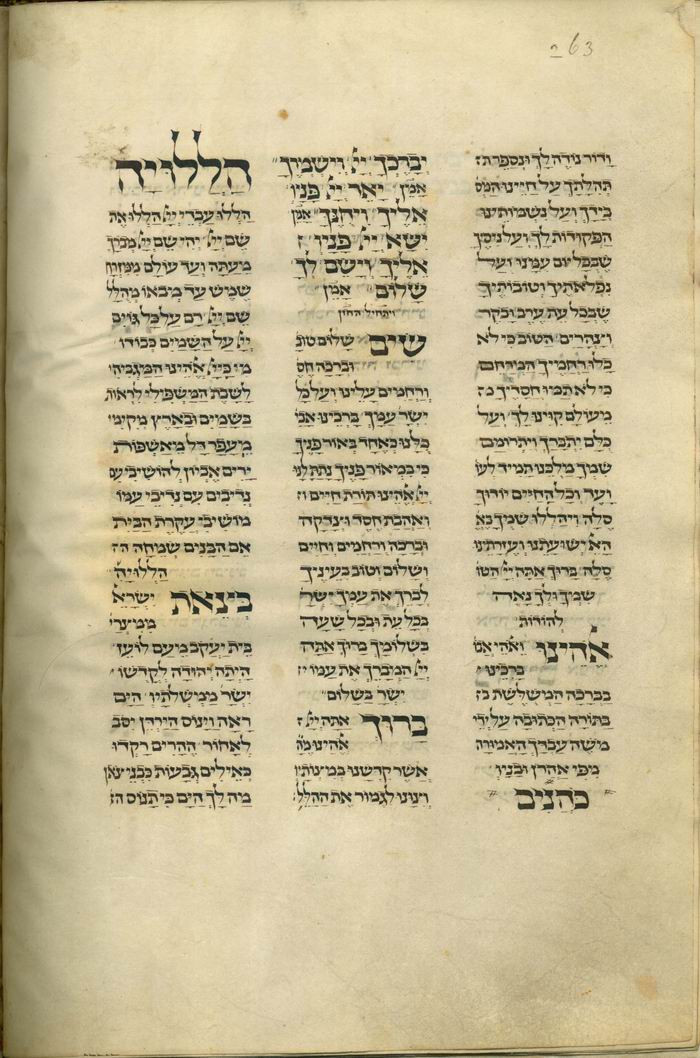 263
ודור נודה לך ונספר ת
תהלתך על חיינו המס
בידך ועל נשמותינו
הפקודות לך ועל ניסיך
שבכל יום עמנו ועל
נפלאתיך וטובותיך
שבכל עת ערב ובקר
וצהרים הטוב כי לא
כלו רחמיך המרחם
כי לא תמו חסדיך כי
מעולם קוינו לך ועל
כלם יתברך ויתרומם
שמך מלכנו תמיד לעו
ועד וכל החיים יודוך
סלה ויהללו שמך בא
הא ישועתנו ועזרתינו
סלה ברוך אתה ייי הטו
שמך ולך נאה
להודות
אהינו ואהי אבו
ברכינו
בברכה המשלשת בת
בתורה הכתובה על ידי
משה עבדך האמורה
מפי אהרן ובניו
כהנים
יברכך ייי וישמרך
אמן יאר ייי פניו
אליך ויחנך אמן
ישא ייי פניו
אליך וישם לך
שלום אמן
ויתחיל החזן
שים שלום טוב
וברכה חס
ורחמים עלינו ועל כל
ישר עמך ברכינו אבי
כלנו כאחד באור פניך
כי במאור פניך נתת לנו
ייי אהינו תורת חיים
ואהבת חסד וצדקה
וברכה ורחמים וחיים
ושלום וטוב בעיניך
לברך את עמך ישר
בכל עת ובכל שעה
בשלומך ברוך אתה
ייי המברך את עמו
ישר בשלום
ברוך אתה ייי
אהינו מה
אשר קדשנו במצותיו
וצונו לגמור את ההלל
הללויה
הללו עבדי ייי הללו את
שם ייי יהי שם ייי מברך
מעתה ועד עולם ממזרח
שמש עד מבאו מהלל
שם ייי רם על כל גוים
ייי על השמים כבודו
מי כייי אהינו המגביהי
לשבת המשפילי לראות
בשמים ובארץ מקימי
מעפר דל מאשפות
ירים אביון להושיבי עם
נדיבים עם נדיבי עמו
מושיבי עקרת הבית
אם הבנים שמחה הל
הללויה
בצאת ישרא
ממצרי
בית יעקב מעם לועז
היתה יהודה לקדשו
ישר ממשלתיו הים
ראה וינוס הירדן יסב
לאחור ההרים רקדו
כאילים גבעות כבני צאן
מה לך הים כי תנוס הי